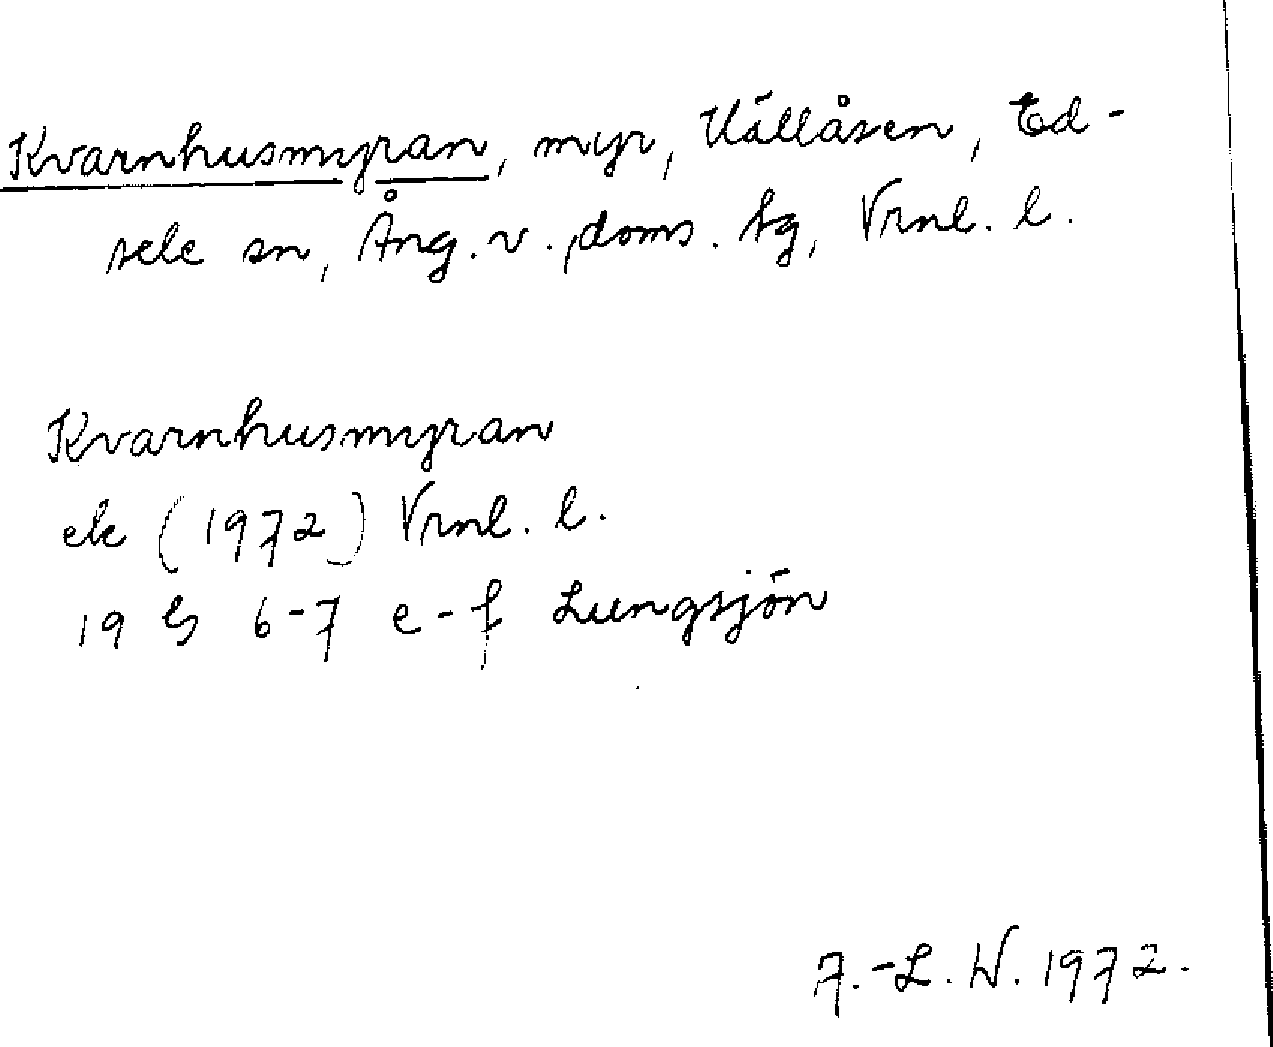 Kvarnhusmyran, myr, Vällåsen, Ed-
sele sn, Ång. v., doms. tg, Vrnl. l.
Kvarnhusmyran
ek (1972) Vrnl. l.
19 G 6-7 e-f Lungsjön
A.-L. W. 1972.